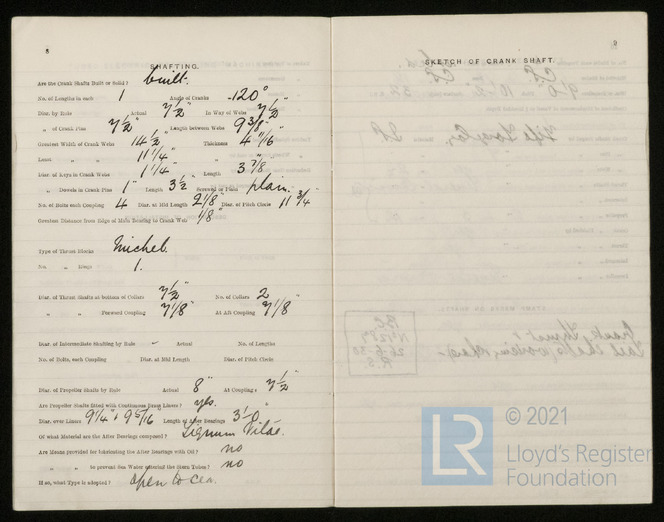 8
SHAFTING.
Are the Crank Shafts Built or Solid? built.
No. of Lengths in each 1 Angle of Cranks 120°
Diar. by Rule Actual 7½" In Way of Webs 7½"
„ of Crank Pins 7½" Length between Webs 9 3/8"
Greatest Width of Crank Webs 14½" Thickness 4 11/16"
Least „ „ 11¼" „
Diar. of Keys in Crank Webs 1¼" Length 3 7/8
„ Dowels in Crank Pins 1" Length 3½" Screwed or Plain plain.
No. of Bolts each Coupling 4 Diar. at Mid Length 2 1/8" Diar. of Pitch Circle 11 3/4"
Greatest Distance from Edge of Main Bearing to Crank Web 1/8"
Type of Thrust Blocks Michel.
No. „ Rings 1.
Diar. of Thrust Shafts at bottom of Collars 7½" No. of Collars 2
„ „ Forward Coupling 7 1/8" At Aft Coupling 7 1/8"
Diar. of Intermediate Shafting by Rule - Actual No. of Lengths
No. of Bolts, each Coupling Diar. at Mid Length Diar. of Pitch Circle
Diar. of Propeller Shafts by Rule Actual 8" At Couplings 7½"
Are Propeller Shafts fitted with Continuous Brass Liners? yes.
Diar. over Liners 9¼" & 9 5/16 Length of After Bearings 3'-0"
Of what Material are the After Bearings composed? Lignum Vitae.
Are Means provided for lubricating the After Bearings with Oil? no
„ „ to prevent Sea Water entering the Stern Tubes? no
If so, what Type is adopted? open to sea.
9
SKETCH OF CRANK SHAFT.
© 2021
LR
Lloyd's Register
Foundation